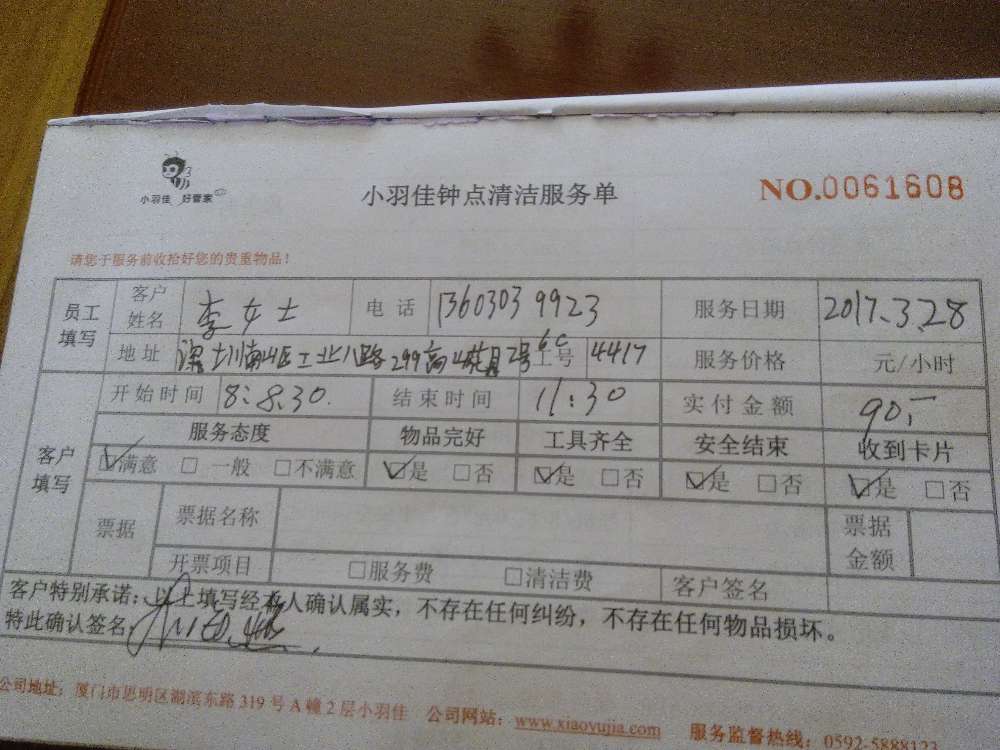 小羽佳 好管家
小羽佳钟点清洁服务单
NO.0061608
请您于服务前收拾好您的贵重物品！
员工填写 客户姓名 李女士 电话 13603039923 服务日期 2017.3.28
地址 深圳南山区工业八路299高山花园2号6C 工号 4417 服务价格 元/小时
客户填写 开始时间 8:8.30. 结束时间 11:30 实付金额 90.-
服务态度 物品完好 工具齐全 安全结束 收到卡片
☑满意 □一般 □不满意 ☑是 □否 ☑是 □否 ☑是 □否 ☑是 □否
票据 票据名称 票据金额
开票项目 □服务费 □清洁费 客户签名
客户特别承诺：以上填写经本人确认属实，不存在任何纠纷，不存在任何物品损坏。
特此确认签名
公司地址：厦门市思明区湖滨东路319号A幢2层小羽佳 公司网站：www.xiaoyujia.com 服务监督热线：0592-5888123